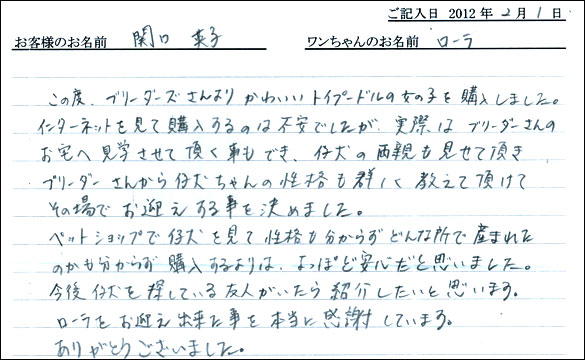 ご記入日 2012年2月1日
お客様のお名前 関口 英子 ワンちゃんのお名前 ローラ
この度、ブリーダーズさんより かわいい トイプードルの女の子を購入しました。
インターネットを見て購入するのは不安でしたが、実際は ブリーダーさんの
お宅へ見学させて頂く事もでき、仔犬の両親も見せて頂き
ブリーダーさんから仔犬ちゃんの性格も群しく教えて頂けて
その場でお迎えする事を決めました。
ペットショップで仔犬を見て性格も分からずどんな所で産まれた
のかも分からず購入するよりは、よっぽど安心だと思いました。
今後仔犬を探している友人がいたら紹介したいと思います。
ローラをお迎え出来た事を本当に感謝しています。
ありがとうございました。